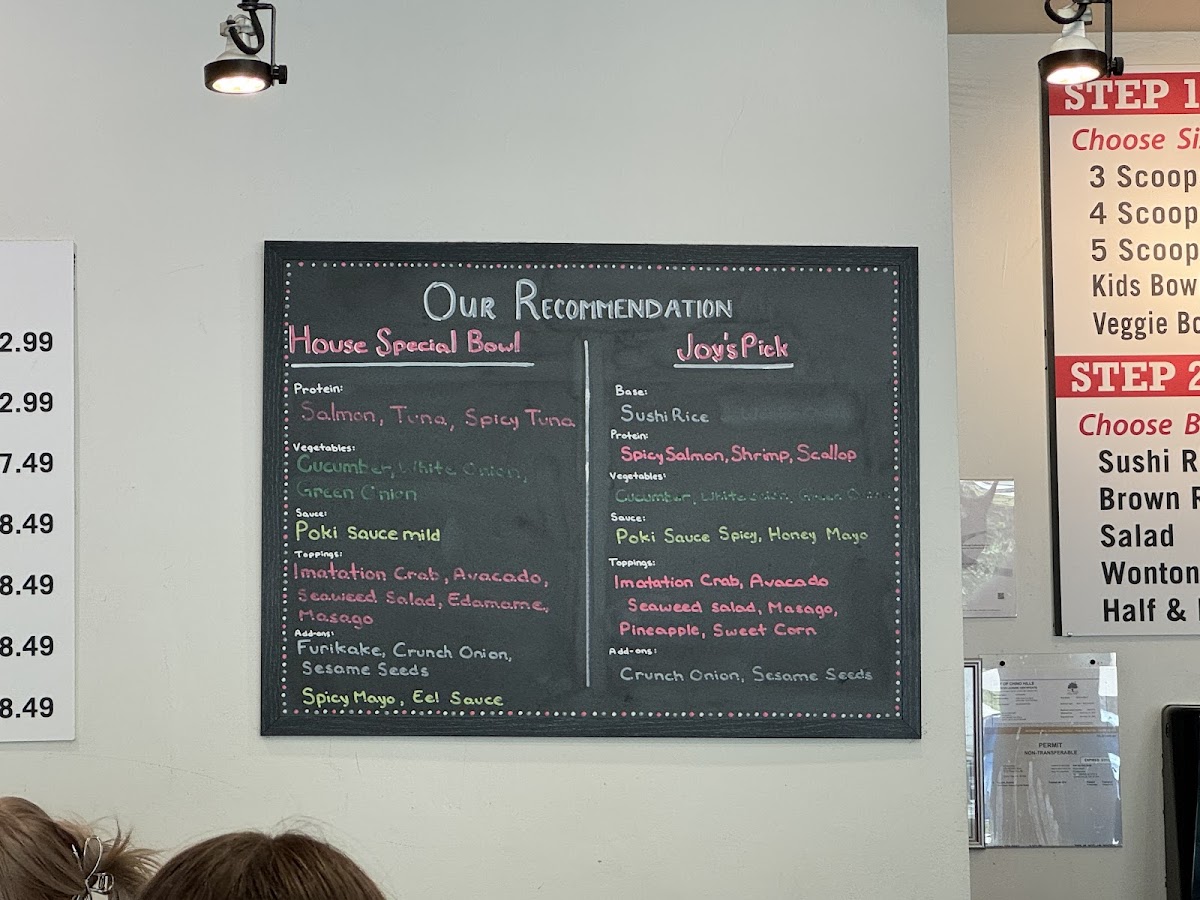 2.99
2.99
7.49
8.49
8.49
8.49
8.49
OUR RECOMMENDATION
House Special Bowl
Protein:
Salmon, Tuna, Spicy Tuna
Vegetables:
Cucumber, White Onion,
Green Onion
Sauce:
Poki Sauce mild
Toppings:
Imatation Crab, Avacado,
Seaweed Salad, Edamame,
Masago
Add-ons:
Furikake, Crunch Onion,
Sesame Seeds
Spicy Mayo, Eel Sauce
Joy's Pick
Base:
Sushi Rice
Protein:
Spicy Salmon, Shrimp, Scallop
Vegetables:
Cucumber, White Onion, Green Onion
Sauce:
Poki Sauce Spicy, Honey Mayo
Toppings:
Imatation Crab, Avacado
Seaweed salad, Masago,
Pineapple, Sweet Corn
Add-ons:
Crunch Onion, Sesame Seeds
STEP 1
Choose Si
3 Scoop
4 Scoop
5 Scoop
Kids Bow
Veggie Bo
STEP 2
Choose B
Sushi R
Brown R
Salad
Wonton
Half &
PERMIT
NON-TRANSFERABLE